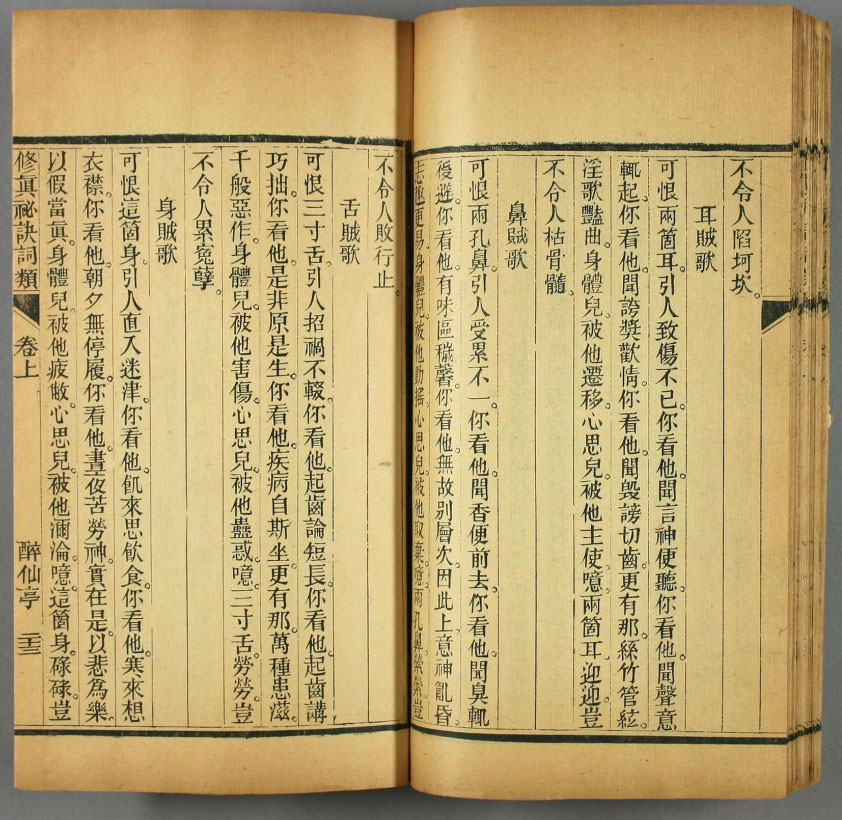 不令人陷坷坎。
耳賊歌
可恨兩箇耳引人致傷不已。你看他。聞言神便聽。你看他。聞聲意
輒起。你看他。聞誇獎歡情。你看他。聞毀謗切齒。更有那。絲竹管絃。
淫歌豔曲。身體兒。被他遷移。心思兒。被他主使。噫。兩箇耳。迎迎。豈
不令人枯骨髓。
鼻賊歌
可恨兩孔鼻。引人受累不一。你看他。聞香便前去。你看他。聞臭輒
後避。你看他。有味區穢馨。你看他。無故別層次。因此上。意神亂昏。
志趣更易。身體兒。被他動搖。心思兒。被他取棄。噫。兩孔鼻。縈縈。豈
不令人敗行止。
舌賊歌
可恨三寸舌。引人招禍不輟。你看他。起齒論短長。你看他。起齒講
巧拙。你看他。是非原是生。你看他。疾病自斯坐。更有那。萬種患滋。
千般惡作。身體兒。被他害傷。心思兒。被他蠱惑。噫。三寸舌。勞勞。豈
不令人累冤孽。
身賊歌
可恨這箇身。引人直入迷津。你看他。飢來思飲食。你看他。寒來想
衣襟。你看他。朝夕無停履。你看他。晝夜苦勞神。實在是。以悲為樂。
以假當眞。身體兒。被他疲敝。心思兒。被他濔淪。噫。這箇身。碌碌。豈
修眞祕訣詞類 卷上 醉仙亭 二十三